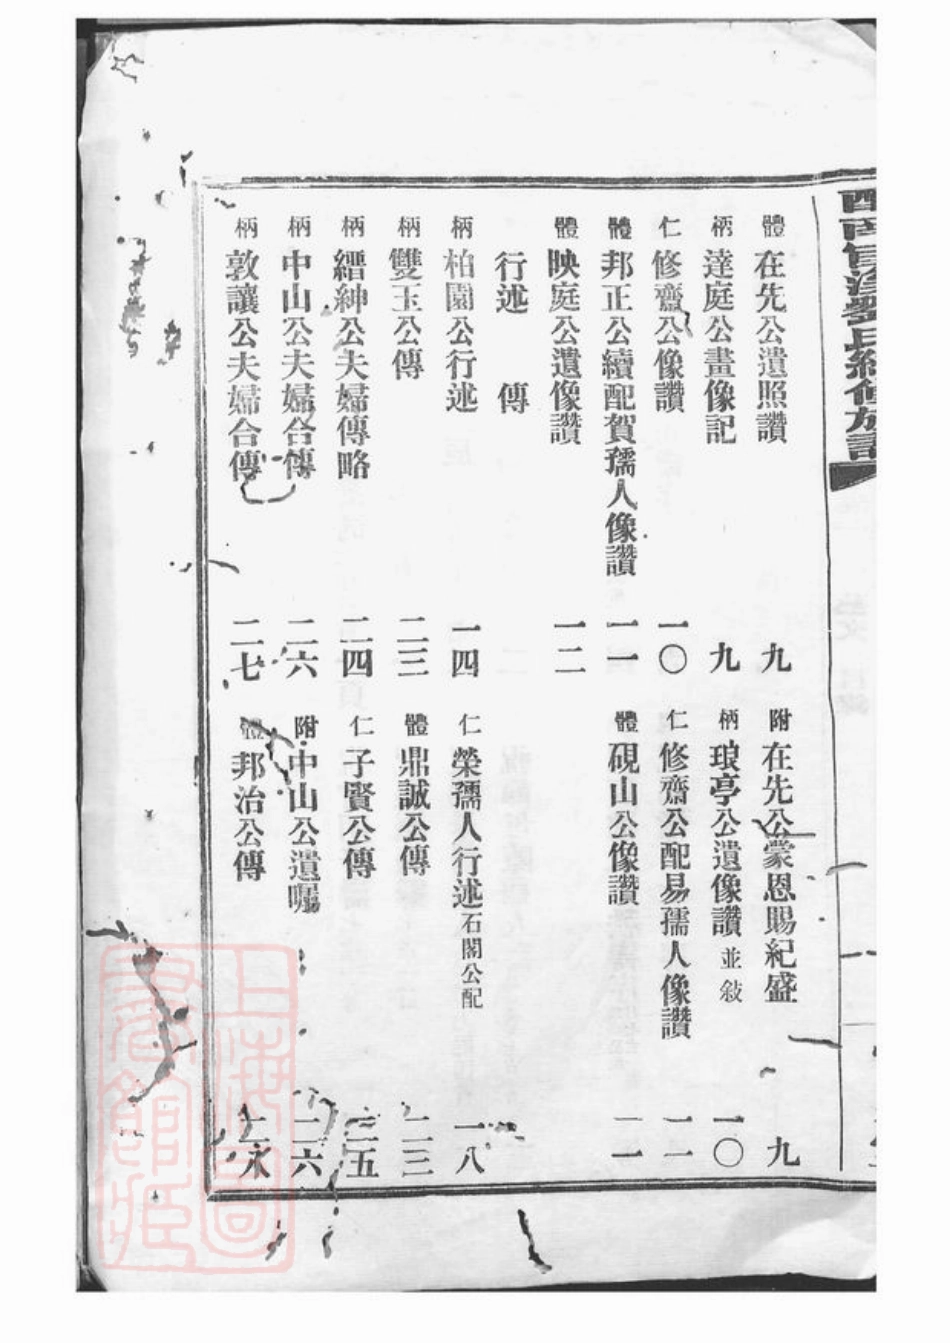 體 在先公遺照讚 九 附 在先公蒙恩賜紀盛 九
柄 達庭公畫像記 九 柄 琅亭公遺像讚 並敍 一〇
仁 修齋公像讚 一〇 仁 修齋公配易孺人像讚 一一
體 邦正公續配賀孺人像讚 一一 體 硯山公像讚 一一
體 映庭公遺像讚 一二
行述 傳
柄 柏園公行述 一四 仁 榮孺人行述 石閣公配 一八
柄 雙玉公傳 二三 體 鼎誠公傳 二三
柄 縉紳公夫婦傳略 二四 仁 子賢公傳 二五
柄 中山公夫婦合傳 二六 附 中山公遺囑 二六
柄 敦讓公夫婦合傳 二七 體 邦治公傳
上海圖書館藏